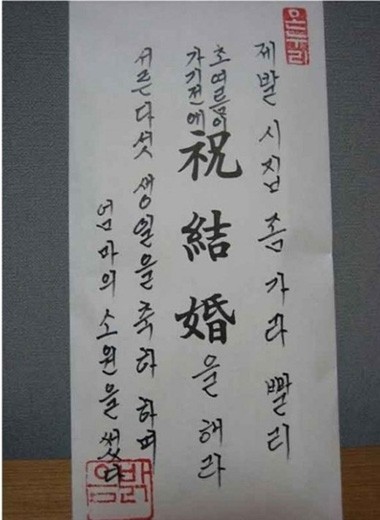 온누리
제발 시집 좀 가라 빨리
초여름이
가기전에
祝結婚을 해라
서른다섯 생일을 축하 하며
엄마의 소원을 썼다
밝음